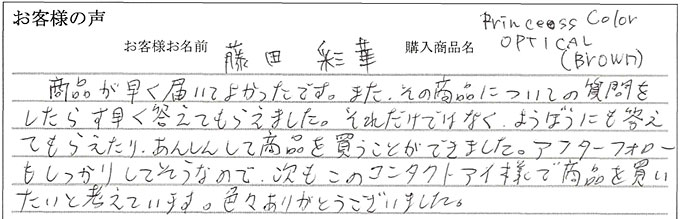 お客様の声
お客様お名前 藤田 彩華 購入商品名 Princeoss Color OPTICAL (Brown)
商品が早く届いてよかったです。また、その商品についての質問を
したらす早く答えてもらえました。それだけではなく、ようぼうにも答え
てもらえたり、あんしんして商品を買うことができました。アフターフォロー
もしっかりしてそうなので、次もこのコンタクトアイ様で商品を買い
たいと考えています。色々ありがとうございました。